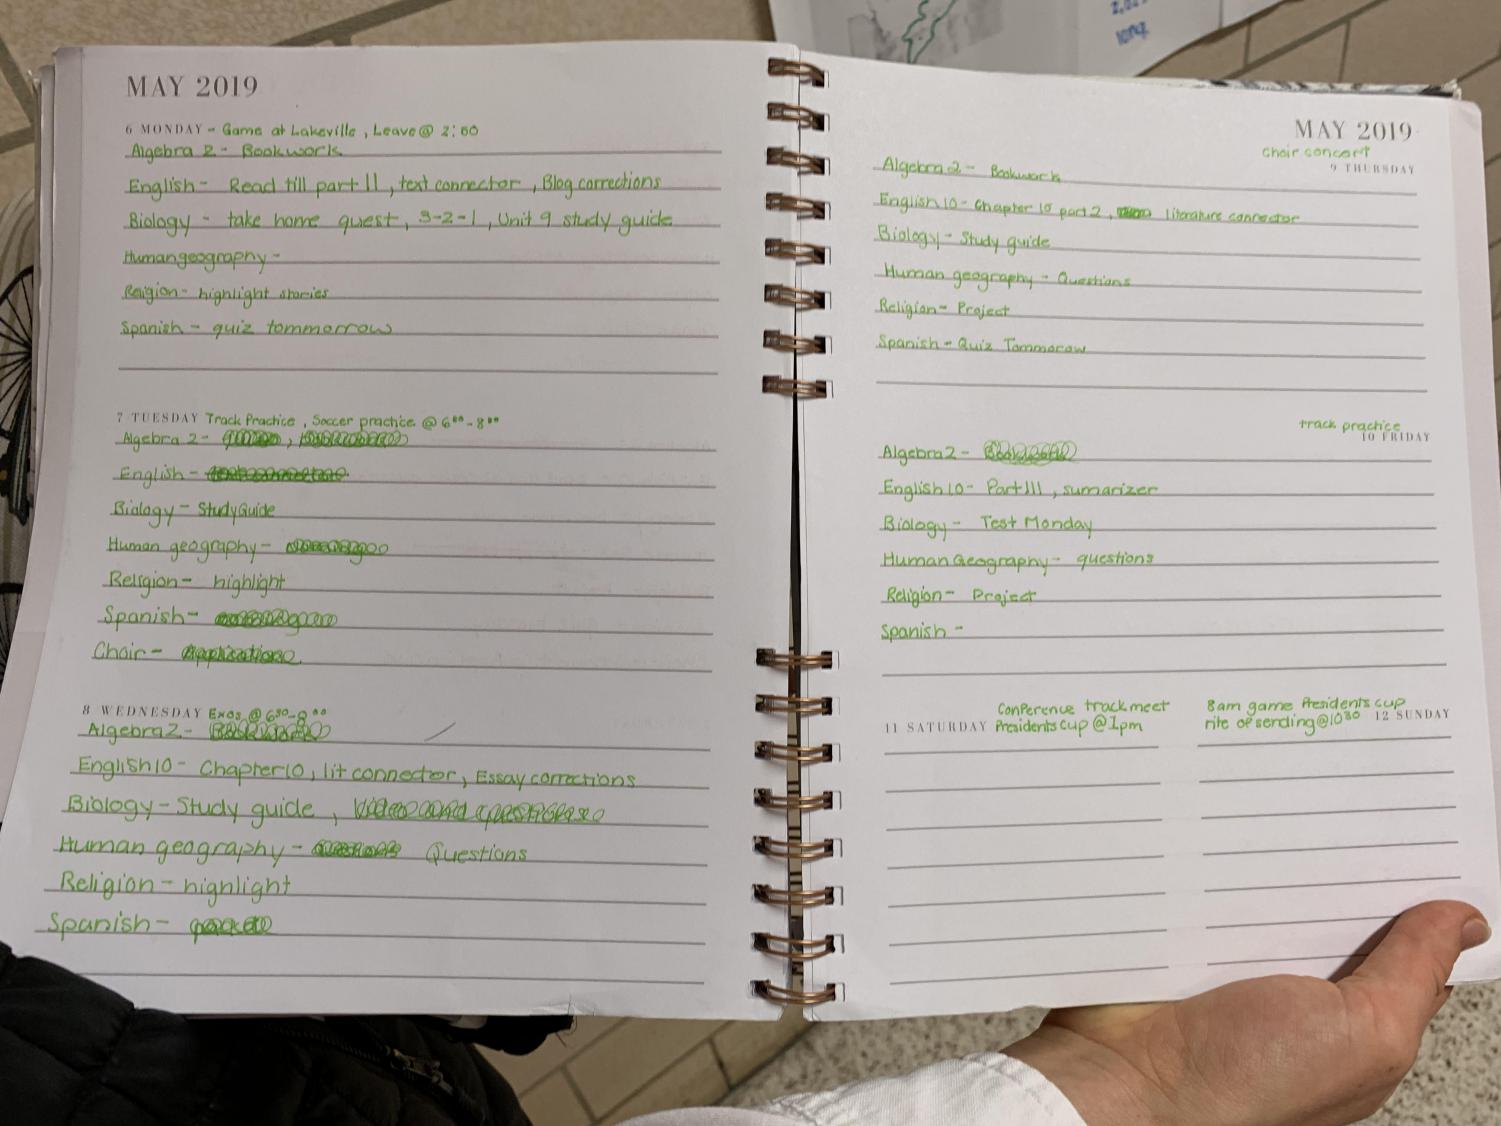 MAY 2019
6 MONDAY - Game at Lakeville, Leave @ 2:00
Algebra 2 - Bookwork
English - Read till part II, text connector, Blog corrections
Biology - take home quest, 3-2-1, Unit 9 study guide
Human geography -
Religion - highlight stories
Spanish - quiz tommorrow
7 TUESDAY Track Practice, Soccer practice @ 6:00 - 8:00
Algebra 2 -
English -
Biology - Study Guide
Human geography -
Religion - highlight
Spanish -
Choir - Application
8 WEDNESDAY Exos @ 6:30 - 8:00
Algebra 2 -
English 10 - Chapter 10, lit connector, Essay corrections
Biology - Study guide,
Human geography - Questions
Religion - highlight
Spanish -
MAY 2019
Choir concert
9 THURSDAY
Algebra 2 - Bookwork
English 10 - Chapter 10 part 2, literature connector
Biology - Study guide
Human geography - Questions
Religion - Project
Spanish - Quiz Tommorow
track practice
10 FRIDAY
Algebra 2 -
English 10 - Part III, sumarizer
Biology - Test Monday
Human Geography - questions
Religion - Project
Spanish -
Conference track meet
11 SATURDAY Presidents cup @ 1pm
8am game Presidents cup
rite of sending @ 10:30 12 SUNDAY
long